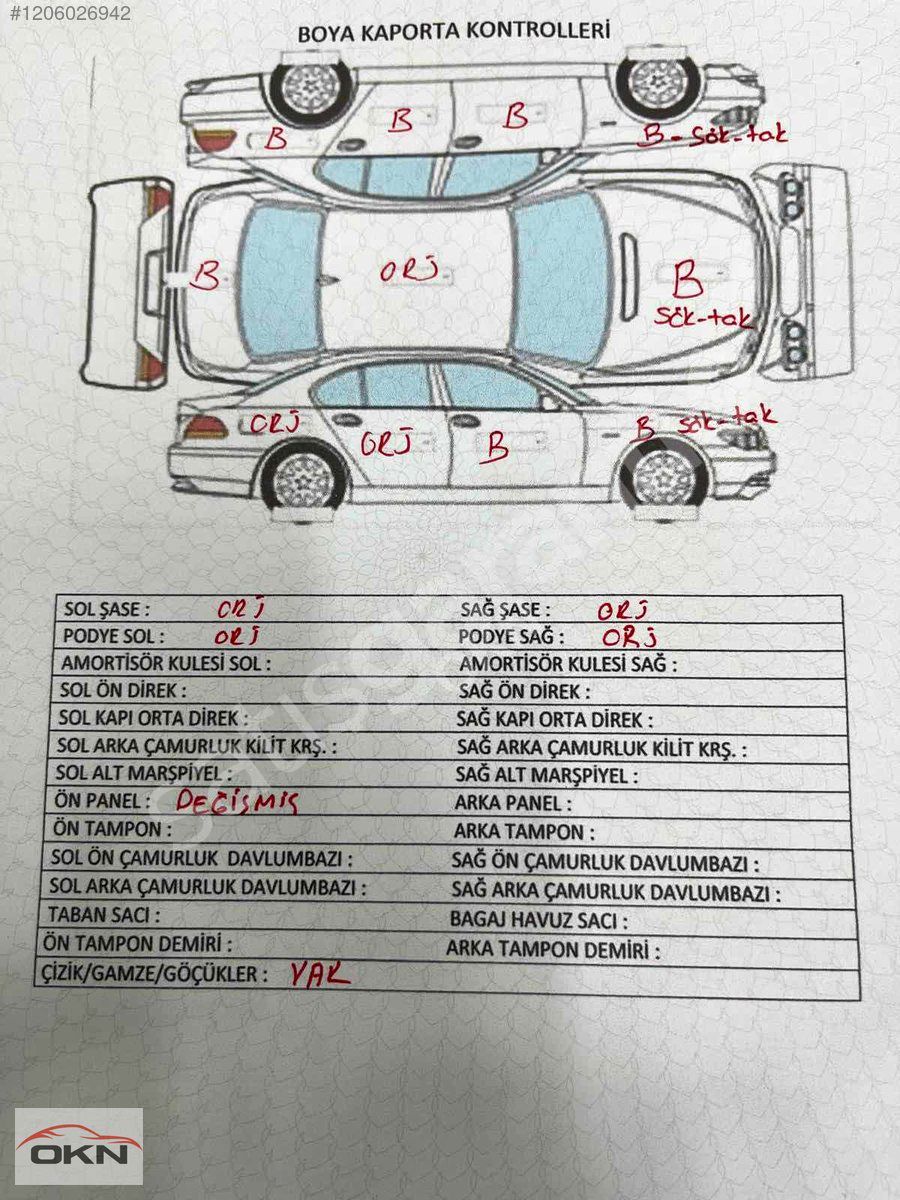 #1206026942
BOYA KAPORTA KONTROLLERİ
B B B B - sök-tak
B ORJ B
sök-tak
ORJ ORJ B B sök-tak
SOL ŞASE : ORJ SAĞ ŞASE : ORJ
PODYE SOL : ORJ PODYE SAĞ : ORJ
AMORTİSÖR KULESİ SOL : AMORTİSÖR KULESİ SAĞ :
SOL ÖN DİREK : SAĞ ÖN DİREK :
SOL KAPI ORTA DİREK : SAĞ KAPI ORTA DİREK :
SOL ARKA ÇAMURLUK KİLİT KRŞ. : SAĞ ARKA ÇAMURLUK KİLİT KRŞ. :
SOL ALT MARŞPİYEL : SAĞ ALT MARŞPİYEL :
ÖN PANEL : DEĞİŞMİŞ ARKA PANEL :
ÖN TAMPON : ARKA TAMPON :
SOL ÖN ÇAMURLUK DAVLUMBAZI : SAĞ ÖN ÇAMURLUK DAVLUMBAZI :
SOL ARKA ÇAMURLUK DAVLUMBAZI : SAĞ ARKA ÇAMURLUK DAVLUMBAZI :
TABAN SACI : BAGAJ HAVUZ SACI :
ÖN TAMPON DEMİRİ : ARKA TAMPON DEMİRİ :
ÇİZİK/GAMZE/GÖÇÜKLER : VAR
OKN